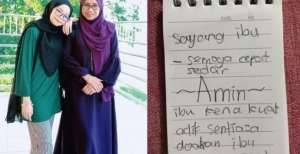 Sayang ibu
- semoga cepat
sedar
~Amin~
ibu kena kuat
adik sentiasa
doakan ibu